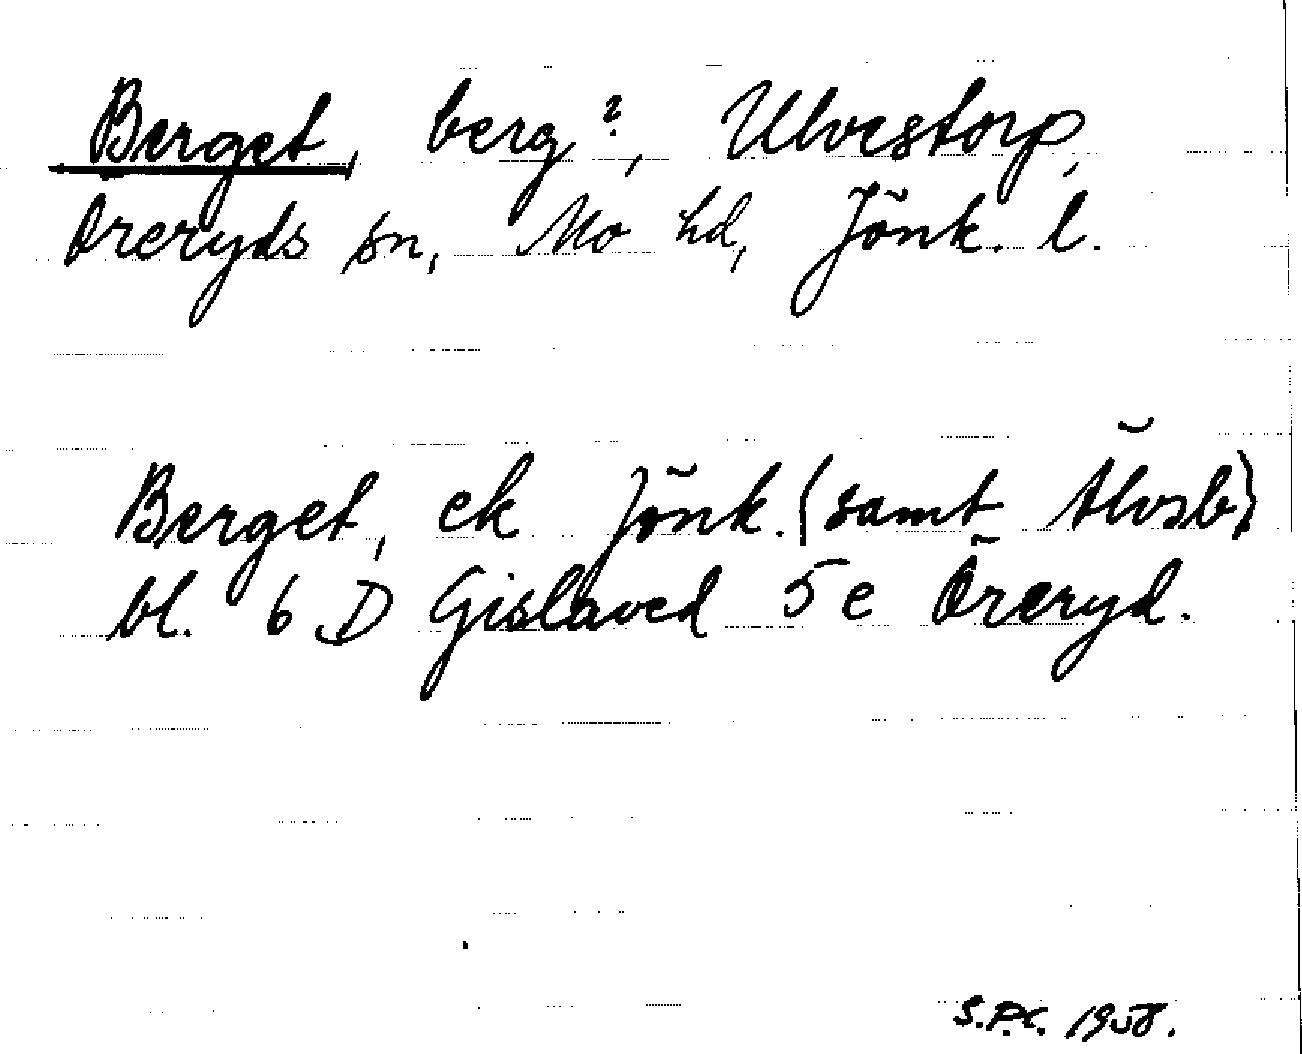 Berget, berg?, Ulvestorp,
Öreryds sn, Mo hd, Jönk. l.
Berget, ek Jönk. (samt Älvsb)
bl. 6 D Gislaved 5 e Öreryd.
S.P.C. 1958.